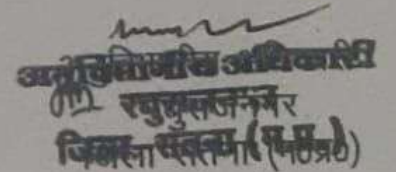 अनुविभागीय अधिकारी
रघुराजनगर
जिला सतना (म०प्र०)